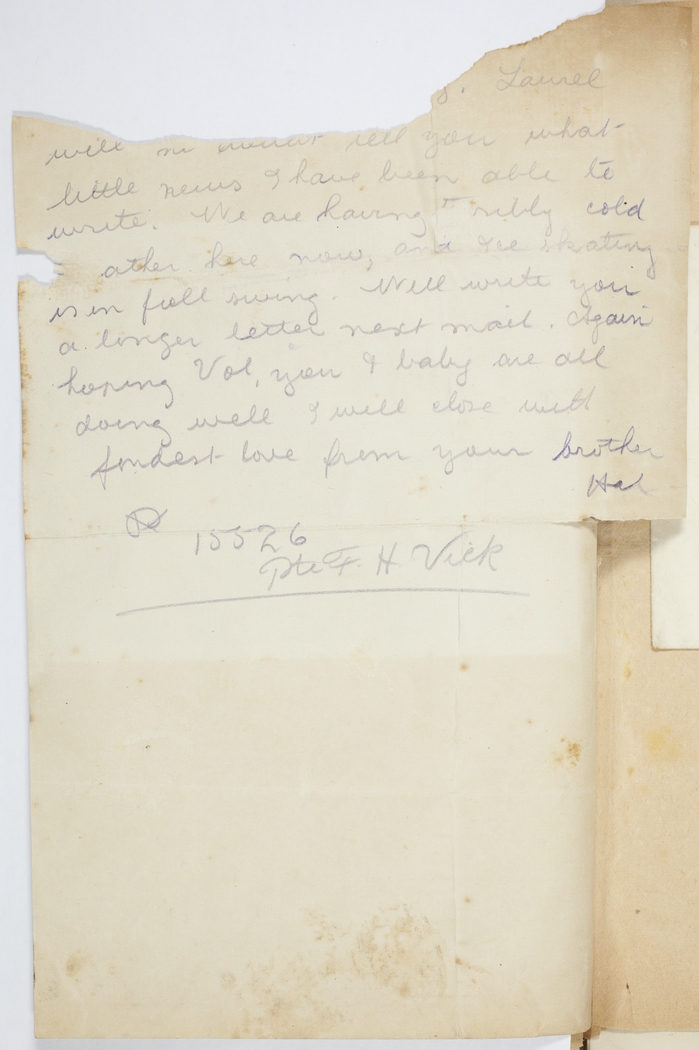 . Laurel
will no doubt tell you what
little news I have been able to
write. We are having ribly cold
ather here now, and Ice skating
is in full swing. Will write you
a longer letter next mail. Again
hoping Vol, you & baby are all
doing well I will close with
fondest love from your brother
Hal
15526
Pte F. H. Vick